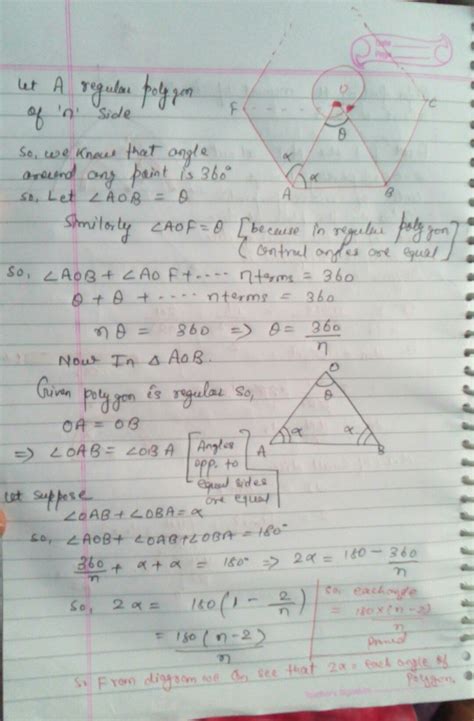 Date
Page
Let A regular polygon
of 'n' side
So, we know that angle
around any point is 360°
so, Let ∠AOB = θ
Similarly ∠AOF = θ [because in regular polygon
central angles are equal]
So, ∠AOB + ∠AOF + ---- n terms = 360
θ + θ + ---- n terms = 360
nθ = 360 ⇒ θ = 360/n
Now In △AOB.
Given polygon is regular so,
OA = OB
⇒ ∠OAB = ∠OBA [Angles
opp. to
equal sides
are equal]
Let suppose
∠OAB + ∠OBA = α
so, ∠AOB + ∠OAB + ∠OBA = 180°
360/n + α + α = 180° ⇒ 2α = 180 - 360/n
So, 2α = 180(1 - 2/n)
= 180(n-2)/n
so, each angle
= 180×(n-2)/n
Proved
So From diagram we can see that 2α = each angle of
polygon
F
O
C
θ
α
α
A
B
O
θ
α
α
A
B